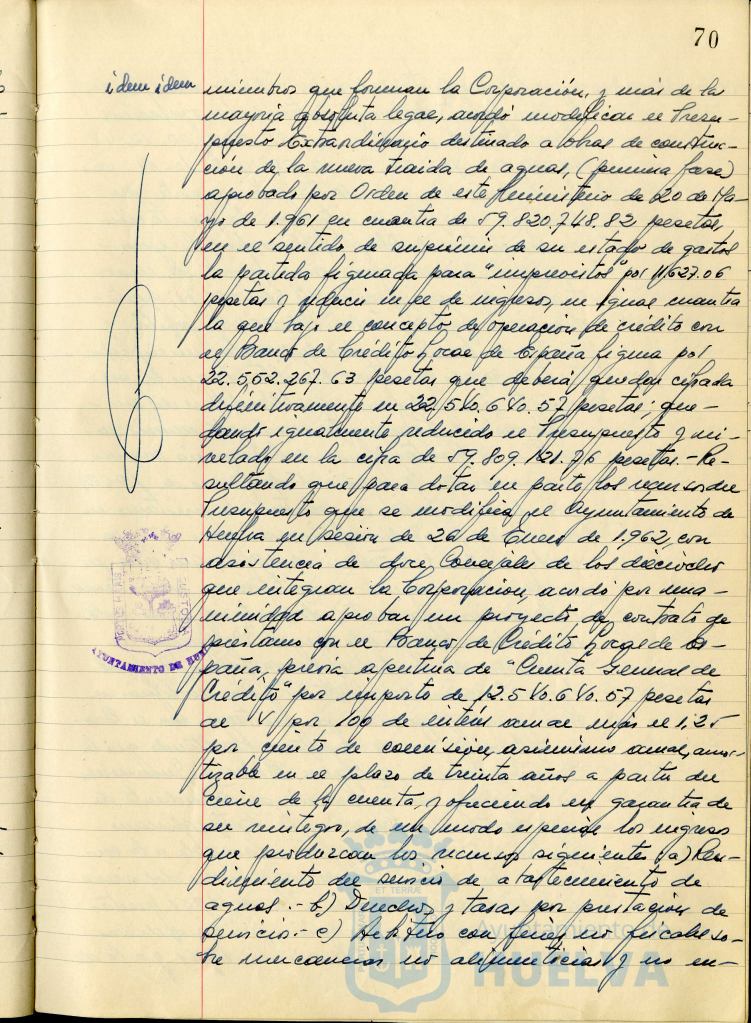 70
idem idem
miembros que forman la Corporación, y más de la
mayoria absoluta legal, acordó modificar el Presu-
puesto Extraordinario destinado a obras de construc-
ción de la nueva traida de aguas, (primera fase)
aprobado por Orden de este Ministerio de 20 de Ma-
yo de 1.961 en cuantia de 59.820.748.82 pesetas,
en el sentido de suprimir de su estado de gastos
la partida figurada para "imprevistos" por 11.627.06
pesetas y reducir en el de ingresos, en igual cuantia
la que bajo el concepto de operación de crédito con
el Banco de Crédito Local de España figura por
22.552.267.63 pesetas que deberá quedar cifrada
definitivamente en 22.540.640.57 pesetas; que-
dando igualmente reducido el Presupuesto y ni-
velado en la cifra de 59.809.121.76 pesetas.- Re-
sultando que para dotar en parte los recursos del
Presupuesto que se modifica, el Ayuntamiento de
Huelva en sesión de 26 de Enero de 1.962, con
asistencia de doce Concejales de los dieciocho
que integran la Corporación, acordó por una-
nimidad aprobar un proyecto de contrato de
préstamo con el Banco de Crédito Local de Es-
paña, previa apertura de "Cuenta General de
Crédito" por importe de 12.540.640.57 pesetas
al 4 por 100 de interés anual más el 1,25
por ciento de comisión, asimismo anual, amor-
tizable en el plazo de treinta años a partir del
cierre de la cuenta, y ofreciendo en garantia de
su reintegro, de un modo especial los ingresos
que produzcan los recursos siguientes: a) Ren-
dimiento del servicio de abastecimiento de
aguas.- b) Derechos y tasas por prestación de
servicio.- c) Arbitrio con fines no fiscales so-
bre mercancias no alimenticias y no en-
AYUNTAMIENTO DE HUELVA
HUELVA